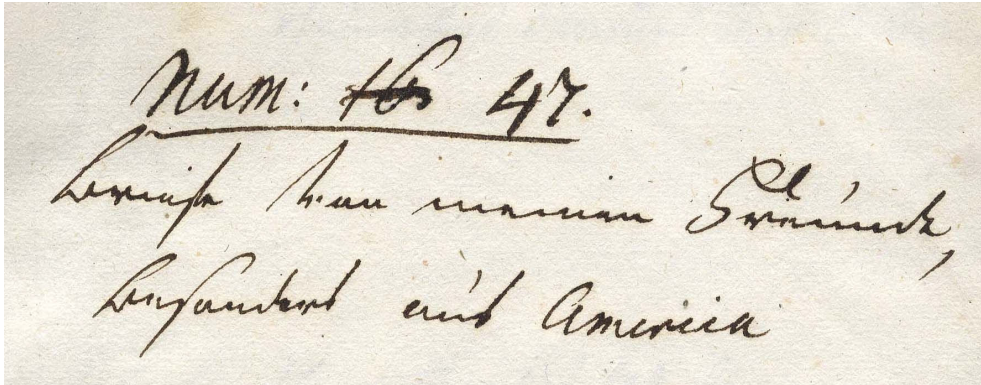 Num: 47.
Briefe von meinen Freünde,
besonders aus America